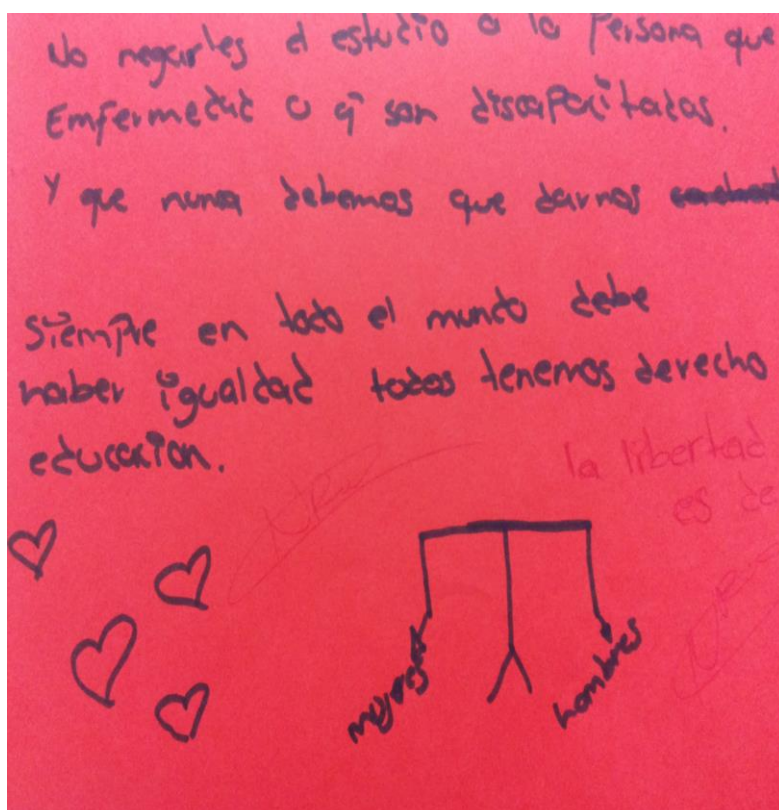 No negarles el estudio a la Persona que
Enfermedad o q son discapacitadas.
Y que nunca debemos que darnos
Siempre en todo el mundo debe
haber igualdad todos tenemos derecho
educacion.
la libertad
es de
mujeres
hombres